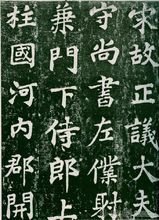 宋故正議大夫
守尚書左僕射
兼門下侍郎上
柱國河內郡開